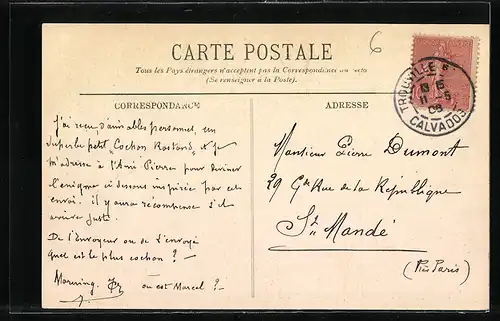 6
CARTE POSTALE
Tous les Pays étrangers n'acceptent pas la Correspondance au recto
(Se renseigner à la Poste).
TROUVILLE
13 15
11-5
08
CALVADOS
CORRESPONDANCE
ADRESSE
J'ai reçu d'aimables personnes, un
superbe petit "Cochon Rostand, et je
m'adresse à l'Ami Pierre pour deviner
l'énigme ci dessous inspirée par cet
envoi. il y aura récompense s'il
arrive juste.
De l'Envoyeur ou de l'envoyé
quel est le plus cochon ? —
ou est Marcel ? —
Monsieur Pierre Dumont
29 Gde Rue de la République
St Mandé
(Près Paris)